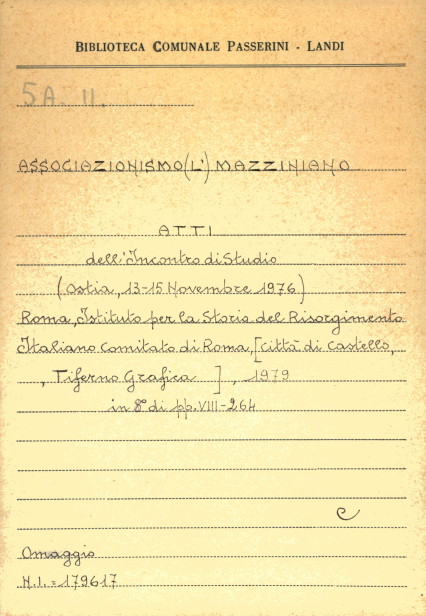 BIBLIOTECA COMUNALE PASSERINI - LANDI
5A. 11.
ASSOCIAZIONISMO (L') MAZZINIANO
ATTI
dell'Incontro di Studio
(Ostia, 13-15 Novembre 1976)
Roma, Istituto per la Storia del Risorgimento
Italiano comitato di Roma, [città di Castello,
, Tiferno Grafica ] , 1979
in 8° di pp. VIII-264
e
Omaggio
N.I. = 179617